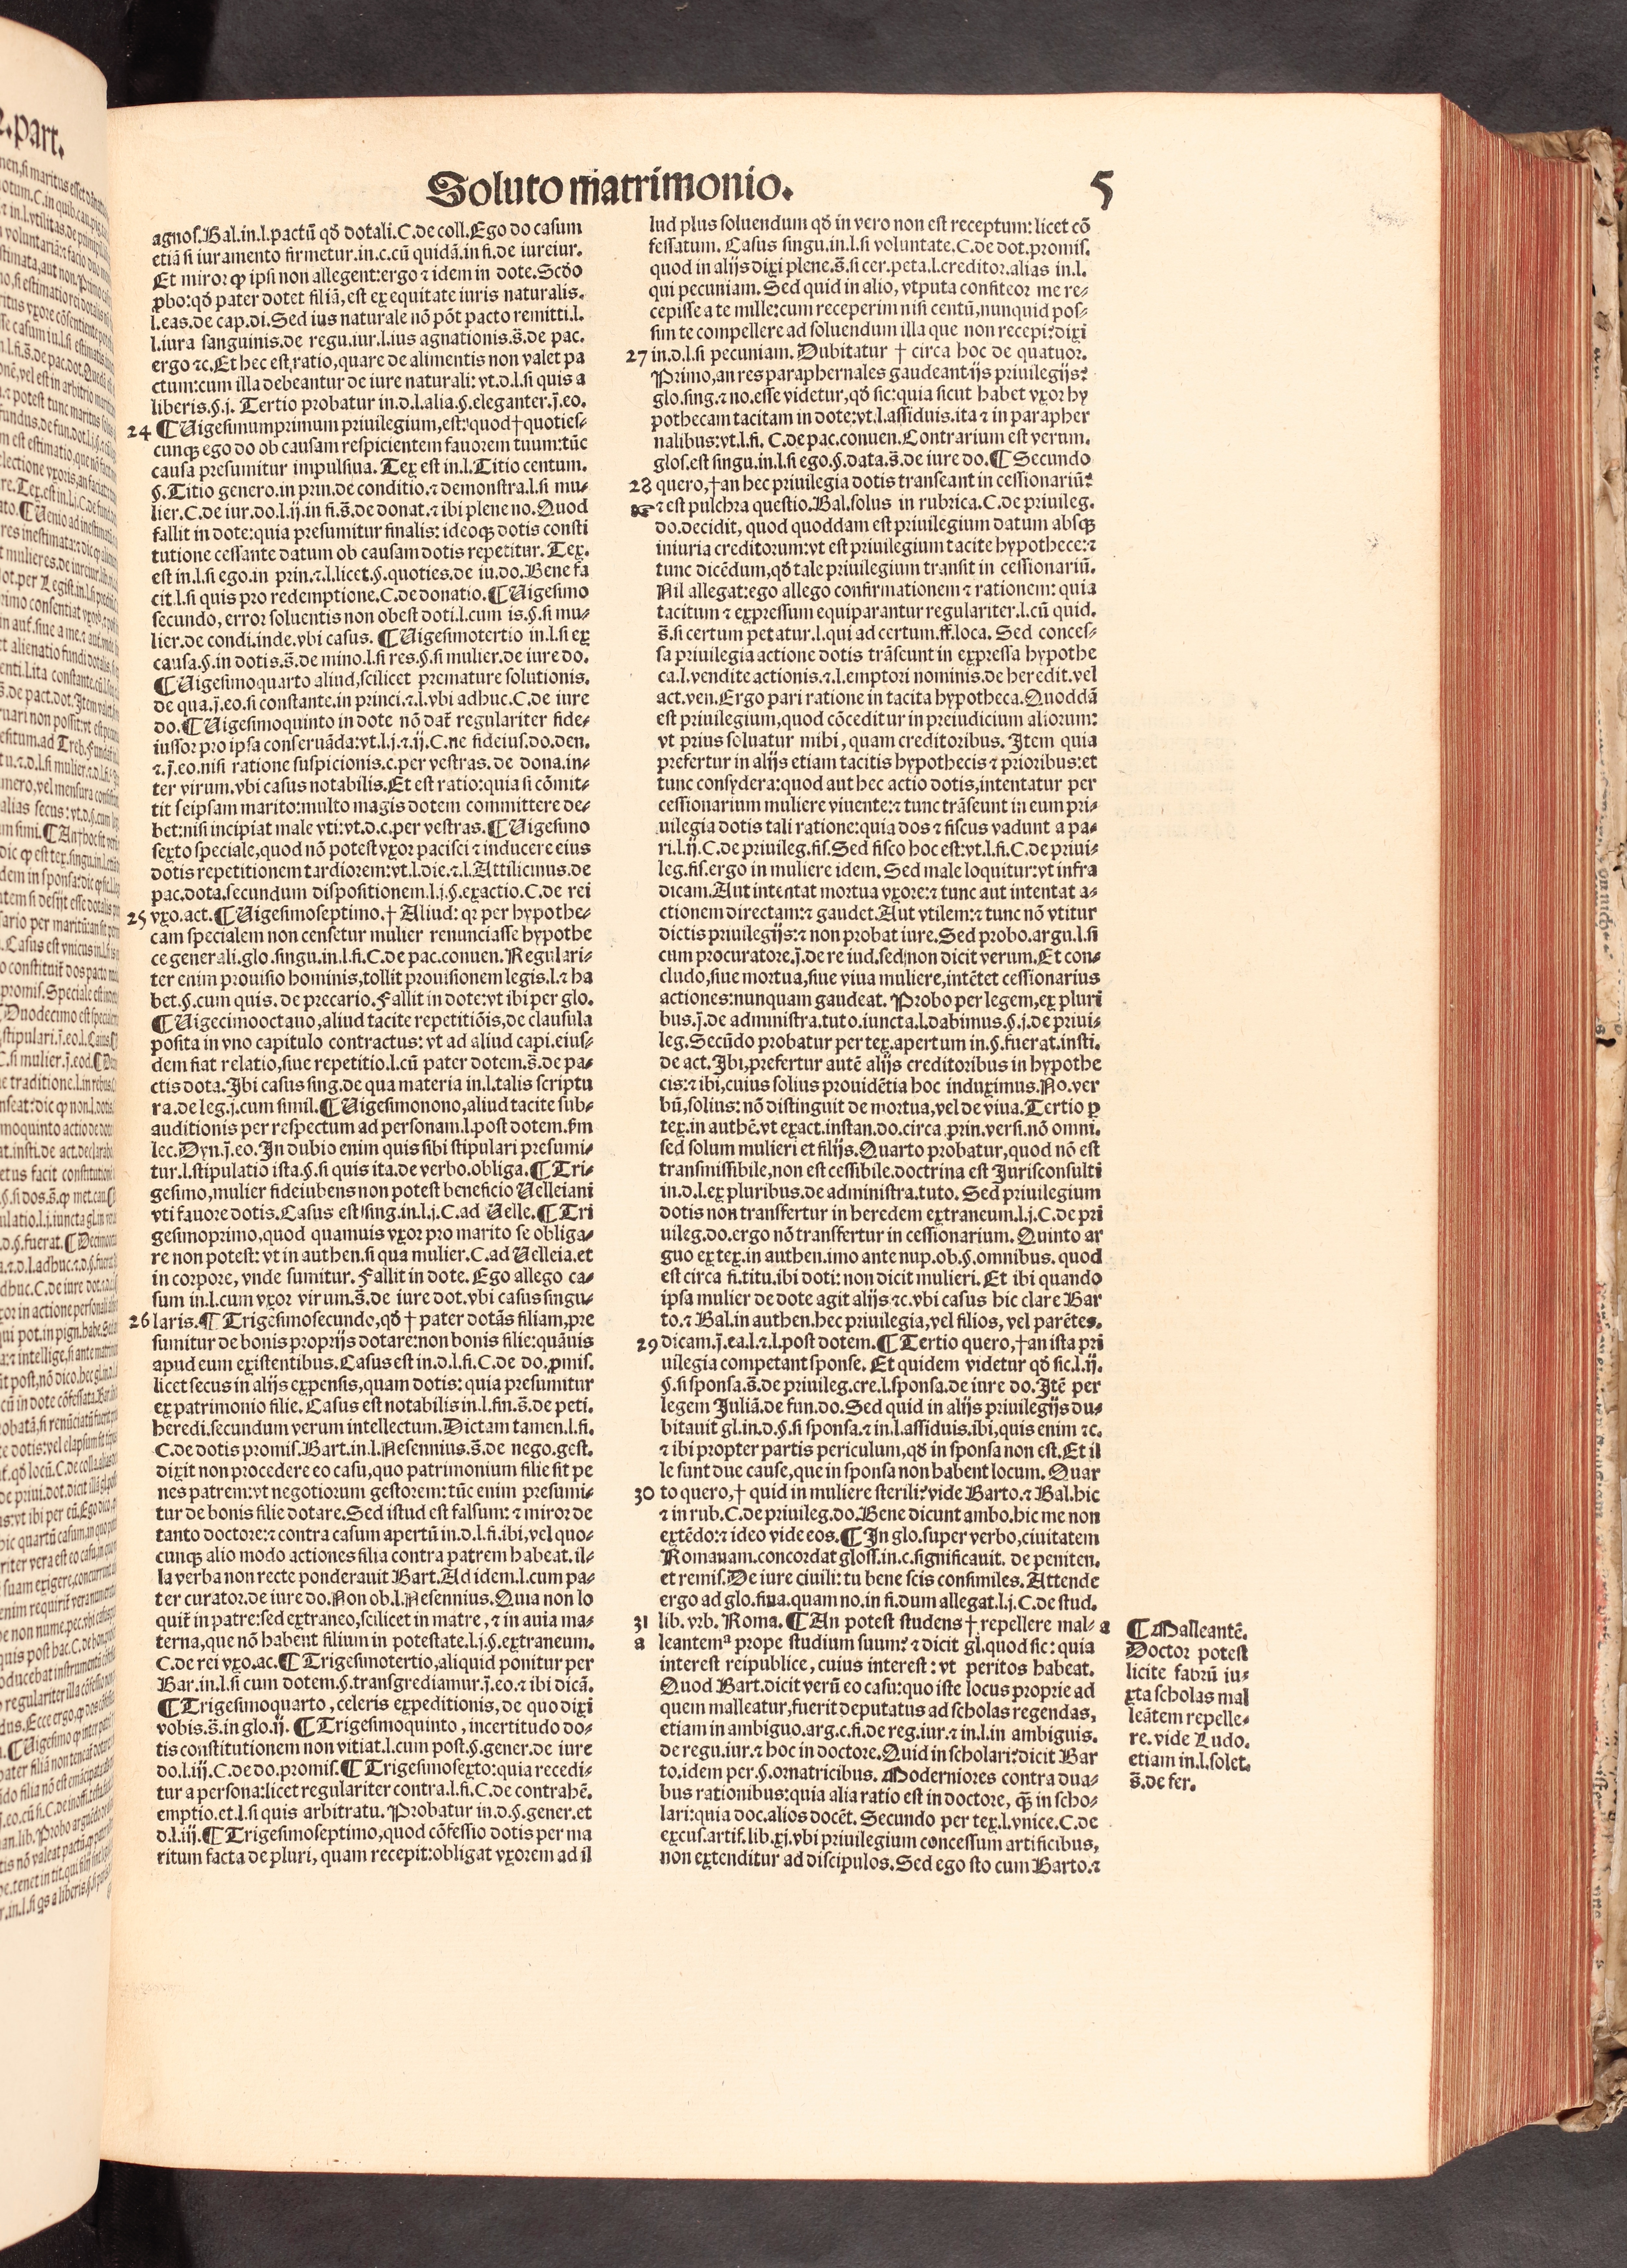 Soluto matrimonio. 5
agnos.Bal.in.l.pactū qđ dotali.C.de coll.Ego do casum
etiā si iuramento firmetur.in.c.cū quidā.in fi.de iureiur.
Et miror ꝙ ipsi non allegent:ergo ⁊ idem in dote.Scđo
ꝓbo:qđ pater dotet filiā,est ex equitate iuris naturalis.
l.eas.de cap.di.Sed ius naturale nō pōt pacto remitti.l.
l.iura sanguinis.de regu.iur.l.ius agnationis.s̄.de pac.
ergo ⁊c.Et hec est ratio, quare de alimentis non valet pa
ctum:cum illa debeantur de iure naturali: vt.d.l.si quis a
liberis.§.j. Tertio probatur in.d.l.alia.§.eleganter.j̄.eo.
24 ¶Uigesimumprimum priuilegium,est:quod†quoties-
cunqꝫ ego do ob causam respicientem fauorem tuum:tūc
causa presumitur impulsiua. Tex est in.l.Titio centum.
§.Titio genero.in prin.de conditio.⁊ demonstra.l.si mu-
lier.C.de iur.do.l.ij.in fi.s̄.de donat.⁊ ibi plene no.Quod
fallit in dote:quia presumitur finalis: ideoqꝫ dotis consti
tutione cessante datum ob causam dotis repetitur. Tex.
est in.l.si ego.in prin.⁊.l.licet.§.quoties.de iu.do.Bene fa
cit.l.si quis pro redemptione.C.de donatio.¶Uigesimo
secundo, error soluentis non obest doti.l.cum is.§.si mu-
lier.de condi.inde.vbi casus. ¶Uigesimotertio in.l.si ex
causa.§.in dotis.s̄.de mino.l.si res.§.si mulier.de iure do.
¶Uigesimoquarto aliud,scilicet premature solutionis.
de qua.j̄.eo.si constante.in princi.⁊.l.vbi adhuc.C.de iure
do.¶Uigesimoquinto in dote nō daƭ regulariter fide-
iussor pro ipsa conseruāda:vt.l.j.⁊.ij.C.ne fideius.do.den.
⁊.j̄.eo.nisi ratione suspicionis.c.per vestras.de dona.in-
ter virum.vbi casus notabilis.Et est ratio:quia si cōmit-
tit seipsam marito:multo magis dotem committere de-
bet:nisi incipiat male vti:vt.d.c.per vestras.¶Uigesimo
sexto speciale,quod nō potest vxor pacisci ⁊ inducere eius
dotis repetitionem tardiorem:vt.l.die.⁊.l.Attilicinus.de
pac.dota.secundum dispositionem.l.j.§.exactio.C.de rei
25 vxo.act.¶Uigesimoseptimo.† Aliud: qꝛ per hypothe-
cam specialem non censetur mulier renunciasse hypothe
ce generali.glo.singu.in.l.fi.C.de pac.conuen.Regulari-
ter enim prouisio hominis,tollit prouisionem legis.l.⁊ ha
bet.§.cum quis. de precario.Fallit in dote:vt ibi per glo.
¶Uigecimooctauo,aliud tacite repetitiōis,de clausula
posita in vno capitulo contractus: vt ad aliud capi.eius-
dem fiat relatio,siue repetitio.l.cū pater dotem.s̄.de pa-
ctis dota.Ibi casus sing.de qua materia in.l.talis scriptu
ra.de leg.j.cum simil.¶Uigesimonono,aliud tacite sub-
auditionis per respectum ad personam.l.post dotem.ẜm
lec.Dyn.j̄.eo.In dubio enim quis sibi stipulari presumi-
tur.l.stipulatio ista.§.si quis ita.de verbo.obliga.¶Tri-
gesimo,mulier fideiubens non potest beneficio Uelleiani
vti fauore dotis.Casus est sing.in.l.j.C.ad Uelle.¶Tri
gesimoprimo,quod quamuis vxor pro marito se obliga-
re non potest: vt in authen.si qua mulier.C.ad Uelleia.et
in corpore, vnde sumitur. Fallit in dote. Ego allego ca-
sum in.l.cum vxor virum.s̄.de iure dot.vbi casus singu-
26 laris.¶Trigesimosecundo,qđ † pater dotās filiam,pre
sumitur de bonis proprijs dotare:non bonis filie:quāuis
apud eum existentibus.Casus est in.d.l.fi.C.de do.ꝓmis.
licet secus in alijs expensis,quam dotis: quia presumitur
ex patrimonio filie. Casus est notabilis in.l.fin.s̄.de peti.
heredi.secundum verum intellectum.Dictam tamen.l.fi.
C.de dotis promis.Bart.in.l.Nesennius.s̄.de nego.gest.
dixit non procedere eo casu,quo patrimonium filie sit pe
nes patrem:vt negotiorum gestorem:tūc enim presumi-
tur de bonis filie dotare.Sed istud est falsum: ⁊ miror de
tanto doctore:⁊ contra casum apertū in.d.l.fi.ibi,vel quo-
cunqꝫ alio modo actiones filia contra patrem habeat.il-
la verba non recte ponderauit Bart.Ad idem.l.cum pa-
ter curator.de iure do.Non ob.l.Nesennius.Quia non lo
quiƭ in patre:sed extraneo,scilicet in matre, ⁊ in auia ma-
terna,que nō habent filium in potestate.l.j.§.extraneum.
C.de rei vxo.ac.¶Trigesimotertio,aliquid ponitur per
Bar.in.l.si cum dotem.§.transgrediamur.j̄.eo.⁊ ibi dicā.
¶Trigesimoquarto, celeris expeditionis, de quo dixi
vobis.s̄.in glo.ij. ¶Trigesimoquinto, incertitudo do-
tis constitutionem non vitiat.l.cum post.§.gener.de iure
do.l.iij.C.de do.promis.¶Trigesimosexto:quia recedi-
tur a persona:licet regulariter contra.l.fi.C.de contrahē.
emptio.et.l.si quis arbitratu. Probatur in.d.§.gener.et
d.l.iij.¶Trigesimoseptimo,quod cōfessio dotis per ma
ritum facta de pluri, quam recepit:obligat vxorem ad il
lud plus soluendum qđ in vero non est receptum: licet cō
fessatum. Casus singu.in.l.si voluntate.C.de dot.promis.
quod in alijs dixi plene.s̄.si cer.peta.l.creditor.alias in.l.
qui pecuniam. Sed quid in alio, vtputa confiteor me re-
cepisse a te mille:cum receperim nisi centū,nunquid pos-
sim te compellere ad soluendum illa que non recepi?dixi
27 in.d.l.si pecuniam. Dubitatur † circa hoc de quatuor.
Primo,an res paraphernales gaudeant ijs priuilegijs?
glo.sing.⁊ no.esse videtur,qđ sic:quia sicut habet vxor hy
pothecam tacitam in dote:vt.l.assiduis.ita ⁊ in parapher
nalibus:vt.l.fi. C.de pac.conuen.Contrarium est verum.
glos.est singu.in.l.si ego.§.data.s̄.de iure do.¶Secundo
28 quero,†an hec priuilegia dotis transeant in cessionariū?
☞ ⁊ est pulchra questio.Bal.solus in rubrica.C.de priuileg.
do.decidit, quod quoddam est priuilegium datum absqꝫ
iniuria creditorum:vt est priuilegium tacite hypothece:⁊
tunc dicēdum,qđ tale priuilegium transit in cessionariū.
Nil allegat:ego allego confirmationem ⁊ rationem: quia
tacitum ⁊ expressum equiparantur regulariter.l.cū quid.
s̄.si certum petatur.l.qui ad certum.ff.loca. Sed conces-
sa priuilegia actione dotis trāseunt in expressa hypothe
ca.l.vendite actionis.⁊.l.emptori nominis.de heredit.vel
act.ven.Ergo pari ratione in tacita hypotheca.Quoddā
est priuilegium,quod cōceditur in preiudicium aliorum:
vt prius soluatur mihi, quam creditoribus. Item quia
prefertur in alijs etiam tacitis hypothecis ⁊ prioribus:et
tunc consydera:quod aut hec actio dotis,intentatur per
cessionarium muliere viuente:⁊ tunc trāseunt in eum pri-
uilegia dotis tali ratione:quia dos ⁊ fiscus vadunt a pa-
ri.l.ij.C.de priuileg.fis.Sed fisco hoc est:vt.l.fi.C.de priui-
leg.fis.ergo in muliere idem. Sed male loquitur:vt infra
dicam.Aut intentat mortua vxore:⁊ tunc aut intentat a-
ctionem directam:⁊ gaudet.Aut vtilem:⁊ tunc nō vtitur
dictis priuilegijs:⁊ non probat iure.Sed probo.argu.l.si
cum procuratore.j̄.de re iud.sed non dicit verum.Et con-
cludo,siue mortua,siue viua muliere,intētet cessionarius
actiones:nunquam gaudeat. Probo per legem,ex pluri
bus.j̄.de administra.tuto.iuncta.l.dabimus.§.j.de priui-
leg.Secūdo probatur per tex.apertum in.§.fuerat.insti.
de act.Ibi,prefertur autē alijs creditoribus in hypothe
cis:⁊ ibi,cuius solius prouidētia hoc induximus.No.ver
bū,solius: nō distinguit de mortua,vel de viua.Tertio ꝑ
tex.in authē.vt exact.instan.do.circa.prin.versi.nō omni.
sed solum mulieri et filijs.Quarto probatur,quod nō est
transmissibile,non est cessibile.doctrina est Jurisconsulti
in.d.l.ex pluribus.de administra.tuto. Sed priuilegium
dotis non transfertur in heredem extraneum.l.j.C.de pri
uileg.do.ergo nō transfertur in cessionarium. Quinto ar
guo ex tex.in authen.imo ante nup.ob.§.omnibus. quod
est circa fi.titu.ibi doti: non dicit mulieri. Et ibi quando
ipsa mulier de dote agit alijs ⁊c.vbi casus hic clare Bar
to.⁊ Bal.in authen.hec priuilegia, vel filios, vel parētes.
29 dicam.j̄.ea.l.⁊.l.post dotem.¶Tertio quero,†an ista pri
uilegia competant sponse. Et quidem videtur qđ sic.l.ij.
§.si sponsa.s̄.de priuileg.cre.l.sponsa.de iure do.Itē per
legem Juliā.de fun.do.Sed quid in alijs priuilegijs du-
bitauit gl.in.d.§.si sponsa.⁊ in.l.assiduis.ibi,quis enim ⁊c.
⁊ ibi propter partis periculum,qđ in sponsa non est.Et il
le sunt due cause,que in sponsa non habent locum. Quar
30 to quero,† quid in muliere sterili?vide Barto.⁊ Bal.hic
⁊ in rub.C.de priuileg.do.Bene dicunt ambo,hic me non
extēdo:⁊ ideo vide eos.¶In glo.super verbo,ciuitatem
Romanam.concordat gloss.in.c.significauit. de peniten.
et remis.De iure ciuili: tu bene scis consimiles. Attende
ergo ad glo.fina.quam no.in fi.dum allegat.l.j.C.de stud.
31 lib.vrb. Roma. ¶An potest studens † repellere mal- a
a leantemᵃ prope studium suum? ⁊ dicit gl.quod sic: quia
interest reipublice, cuius interest: vt peritos habeat.
Quod Bart.dicit verū eo casu:quo iste locus proprie ad
quem malleatur,fuerit deputatus ad scholas regendas,
etiam in ambiguo.arg.c.fi.de reg.iur.⁊ in.l.in ambiguis.
de regu.iur.⁊ hoc in doctore.Quid in scholari?dicit Bar
to.idem per.§.ornatricibus. Moderniores contra dua-
bus rationibus:quia alia ratio est in doctore, ꝙ̄ in scho-
lari:quia doc.alios docēt. Secundo per tex.l.vnice.C.de
excus.artif.lib.xj.vbi priuilegium concessum artificibus,
non extenditur ad discipulos.Sed ego sto cum Barto.⁊
¶Malleantē.
Doctor potest
licite fabrū iu-
xta scholas mal
leātem repelle-
re. vide Ludo.
etiam in.l.solet.
s̄.de fer.